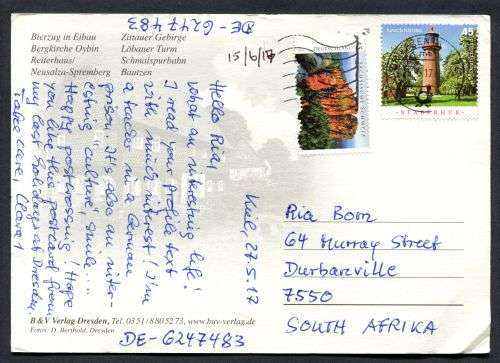 DE-6247483
Bierzug in Eibau
Bergkirche Oybin
Reiterhaus/
Neusalza-Spremberg
Zittauer Gebirge
Löbauer Turm
Schmalspurbahn
Bautzen
15/6/17
DEUTSCHLAND
45
STABERHUK
Kiel, 27.5.17
Hello Ria,
what an interesting life!
I read your profile text
with much interest! I'm
a teacher in a German
prison. It's also an inter-
esting "culture", smile...
Happy postcrossing! Hope
you like this postcard from
my last holidays at Dresden.
Take care, Clara
Ria Born
64 Murray Street
Durbanville
7550
SOUTH AFRIKA
B & V Verlag Dresden, Tel. 03 51/8 80 52 73, www.buv-verlag.de
Fotos: D. Berthold, Dresden
DE-6247483